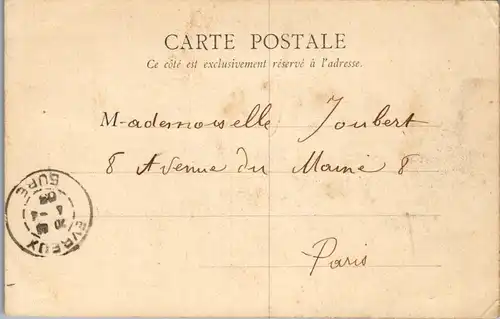 CARTE POSTALE
Ce côté est exclusivement réservé à l'adresse.
Mademoiselle Joubert
8 Avenue du Maine 8
Paris
EVREUX
EURE